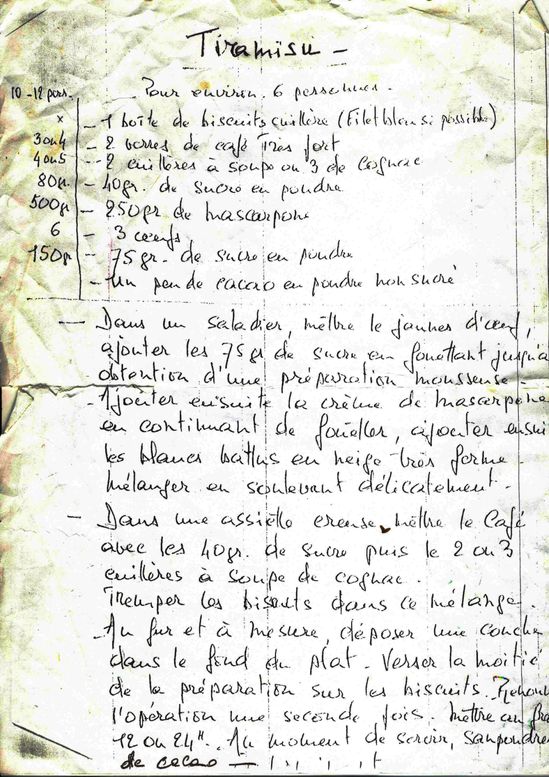 Tiramisu -
10-12 pers. Pour environ 6 personnes.
x - 1 boîte de biscuits cuillère (Filet bleu si possible)
3 ou 4 - 2 verres de café très fort
4 ou 5 - 2 cuillères à soupe ou 3 de Cognac
80gr. - 40gr. de sucre en poudre
500gr - 250gr de mascarpone
6 - 3 œufs
150gr - 75gr. de sucre en poudre
- Un peu de cacao en poudre non sucré
- Dans un saladier, mettre le jaunes d'œuf,
ajouter les 75gr de sucre en fouettant jusqu'à
obtention d'une préparation mousseuse -
- Ajouter ensuite la crème de mascarpone
en continuant de fouetter, ajouter ensui
les blancs battus en neige très ferme.
mélanger en soulevant délicatement.
- Dans une assiette creuse, mettre le Café
avec les 40gr. de sucre puis le 2 ou 3
cuillères à soupe de cognac.
Tremper les biscuits dans ce mélange.
- Au fur et à mesure, déposer une couche
dans le fond du plat. Verser la moitié
de la préparation sur les biscuits.
l'opération une seconde fois. Mettre au fra
12 ou 24H. Au moment de servir, saupoudre
de cacao -